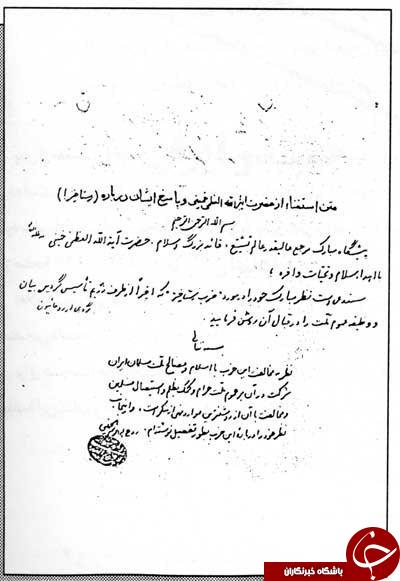 متن استفتاء از حضرت آیة الله العظمی خمینی و پاسخ ایشان درباره (رستاخیز)
بسم الله الرحمن الرحیم
پیشگاه مبارک مرجع عالیقدر عالم تشیع، قائد بزرگ اسلام، حضرت آیة الله العظمی خمینی مدظله
با اهداء سلام و تحیات وافره ؛
مستدعی است نظر مبارک خود را در مورد «حزب رستاخیز» که اخیراً از طرف رژیم تأسیس گردیده بیان
و وظیفه عموم ملت را در قبال آن روشن فرمایید. گروهی از روحانیون
بسمه تعالی
نظر به مخالفت این حزب با اسلام و مصالح ملت مسلمان ایران
شرکت در آن بر عموم ملت حرام و کمک به ظلم و استیصال مسلمین
و مخالفت با آن از روشنترین موارد نهی از منکر است. و اینجانب
نظر خود را درباره این حزب بطور تفصیل نوشته‌ام. روح الله الموسوی الخمینی
باشگاه خبرنگاران